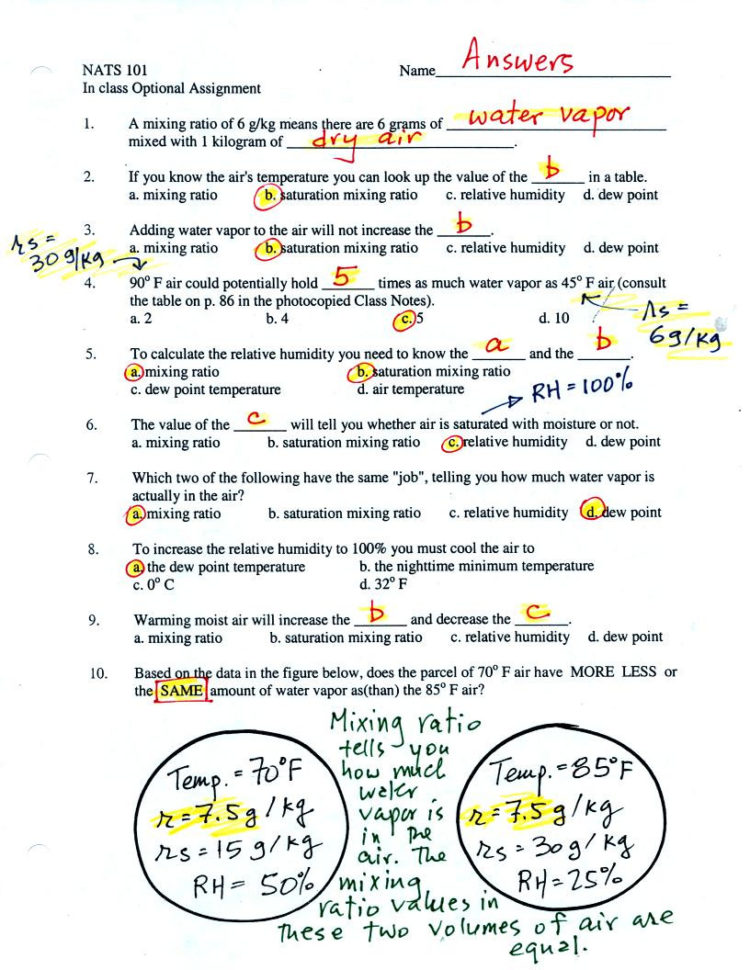 NATS 101
Name Answers
In class Optional Assignment
1. A mixing ratio of 6 g/kg means there are 6 grams of water vapor
mixed with 1 kilogram of dry air.
2. If you know the air's temperature you can look up the value of the b in a table.
a. mixing ratio b. saturation mixing ratio c. relative humidity d. dew point
3. Adding water vapor to the air will not increase the b.
a. mixing ratio b. saturation mixing ratio c. relative humidity d. dew point
rs =
30 g/kg
4. 90° F air could potentially hold 5 times as much water vapor as 45° F air (consult
the table on p. 86 in the photocopied Class Notes).
a. 2 b. 4 c. 5 d. 10
rs =
6g/kg
5. To calculate the relative humidity you need to know the a and the b.
a. mixing ratio b. saturation mixing ratio
c. dew point temperature d. air temperature
RH = 100%
6. The value of the c will tell you whether air is saturated with moisture or not.
a. mixing ratio b. saturation mixing ratio c. relative humidity d. dew point
7. Which two of the following have the same "job", telling you how much water vapor is
actually in the air?
a. mixing ratio b. saturation mixing ratio c. relative humidity d. dew point
8. To increase the relative humidity to 100% you must cool the air to
a. the dew point temperature b. the nighttime minimum temperature
c. 0° C d. 32° F
9. Warming moist air will increase the b and decrease the c.
a. mixing ratio b. saturation mixing ratio c. relative humidity d. dew point
10. Based on the data in the figure below, does the parcel of 70° F air have MORE LESS or
the SAME amount of water vapor as(than) the 85° F air?
Temp. = 70°F
r = 7.5 g/kg
rs = 15 g/kg
RH = 50%
Mixing ratio
tells you
how much
water
vapor is
in the
air. The
mixing
ratio values in
these two volumes of air are
equal.
Temp. = 85°F
r = 7.5 g/kg
rs = 30 g/kg
RH = 25%